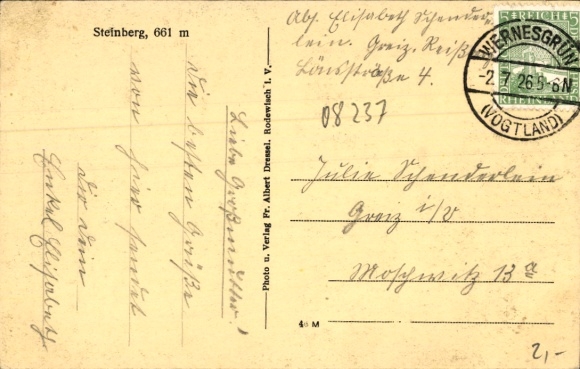 Steinberg, 661 m
Abs. Elisabeth Schender-
lein. Greiz. Reiß
Lönsstraße 4.
5 REICH 5
RHEINLAND
WERNESGRÜN
-2.7.26 5-6N
(VOGTLAND)
08237
Liebe Großmutter!
Die besten Grüße
von hier sendet
dir dein
Enkel Elisabeth
Photo u. Verlag Fr. Albert Dressel, Rodewisch i. V.
Julie Schenderlein
Greiz i/V
Moschwitz 13a
4e M
2,-